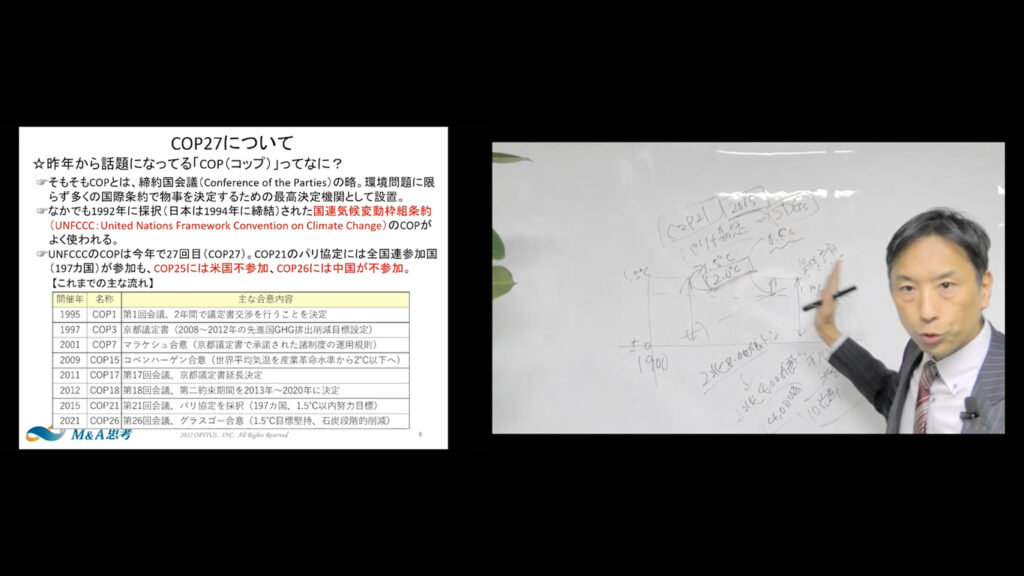 COP27について
☆昨年から話題になってる「COP（コップ）」ってなに？
☞そもそもCOPとは、締約国会議（Conference of the Parties）の略。環境問題に限
らず多くの国際条約で物事を決定するための最高決定機関として設置。
☞なかでも1992年に採択（日本は1994年に締結）された国連気候変動枠組条約
（UNFCCC：United Nations Framework Convention on Climate Change）のCOPが
よく使われる。
☞UNFCCCのCOPは今年で27回目（COP27）。COP21のパリ協定には全国連参加国
（197カ国）が参加も、COP25には米国不参加、COP26には中国が不参加。
【これまでの主な流れ】
開催年 名称 主な合意内容
1995 COP1 第1回会議、2年間で議定書交渉を行うことを決定
1997 COP3 京都議定書（2008～2012年の先進国GHG排出削減目標設定）
2001 COP7 マラケシュ合意（京都議定書で承諾された諸制度の運用規則）
2009 COP15 コペンハーゲン合意（世界平均気温を産業革命水準から2℃以下へ）
2011 COP17 第17回会議、京都議定書延長決定
2012 COP18 第18回会議、第二約束期間を2013年～2020年に決定
2015 COP21 第21回会議、パリ協定を採択（197カ国、1.5℃以内努力目標）
2021 COP26 第26回会議、グラスゴー合意（1.5℃目標堅持、石炭段階的削減）
M&A思考
2022 OPITUS . INC. All Rights Reserved
8
COP21 2015
1.5℃
2.0℃
1.5℃
±0
1900